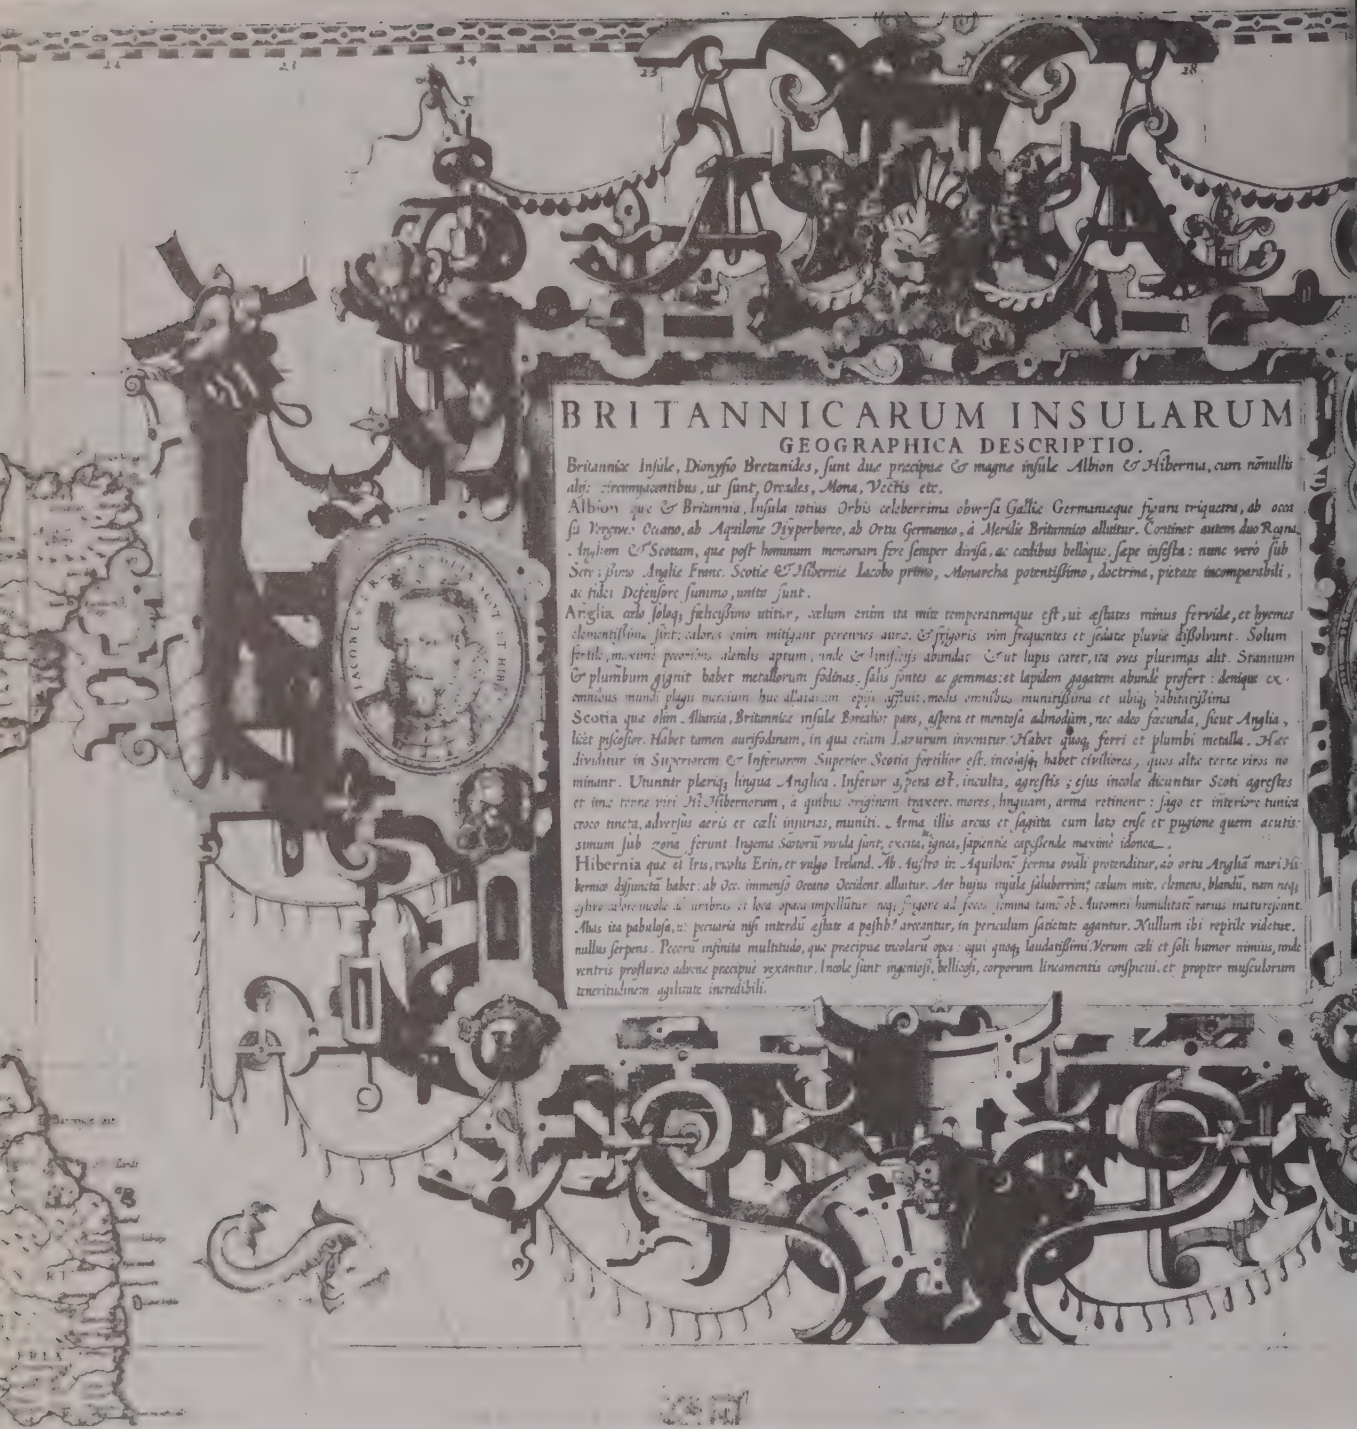 22 23 24 25 28
BRITANNICARUM INSULARUM
GEOGRAPHICA DESCRIPTIO.
Britanniæ Insulæ, Dionysio Bretanides, sunt duæ præcipuæ & magnæ insulæ Albion & Hibernia, cum nõnullis
alijs circumjacentibus, ut sunt, Orcades, Mona, Vectis etc.
Albion quæ & Britannia, Insula totius Orbis celeberrima obversa Galliæ Germaniæque figura triquetra, ab occa
su Vergivio Oceano, ab Aquilone Hyperboreo, ab Ortu Germanico, à Meridie Britannico alluitur. Continet autem duo Regna,
Angliam & Scotiam, quæ post hominum memoriam fere semper divisa, ac cædibus belloque sæpe infesta: nunc verò sub
Serenissimo Angliæ Franc. Scotiæ & Hiberniæ Iacobo primo, Monarcha potentissimo, doctrina, pietate incomparabili,
ac fidei Defensore summo, unita sunt.
Anglia cælo soloq; fælicissimo utitur, cælum enim ita mite temperatumque est, ut æstates minus fervidæ, et hyemes
clementissimæ sint: calores enim mitigant perennes auræ, & frigoris vim frequentes et sedatæ pluviæ dissolvunt. Solum
fertile, maxime pecoribus alendis aptum, unde & lanificijs abundat & ut lupis caret, ita oves plurimas alit. Stannum
& plumbum gignit habet metallorum fodinas, salis fontes ac gemmas: et lapidem gagatem abunde profert: denique ex
omnibus mundi plagis mercium huc allatarum opijs affluit, modis omnibus munitissima et ubiq; habitatissima
Scotia quæ olim Albania, Britannicæ insulæ Borealior pars, aspera et montosa admodùm, nec adeo fæcunda, sicut Anglia,
licèt piscosior. Habet tamen aurifodinam, in qua etiam Lazurum invenitur. Habet quoq; ferri et plumbi metalla. Hæc
dividitur in Superiorem & Inferiorem Superior Scotia fertilior est, incolasq; habet civiliores, quos altæ terræ viros no
minant. Utuntur plæriq; lingua Anglica. Inferior aspera est, inculta, agrestis; ejus incolæ dicuntur Scoti agrestes
et imæ terræ viri Hi Hibernorum, à quibus originem traxere, mores, linguam, arma retinent: sago et interiore tunica
croco tincta, adversus aeris et cæli injurias, muniti. Arma illis arcus et sagitta cum lato ense et pugione quem acutis:
simum sub zona ferunt. Ingenia Scotorũ vivida sunt, excita, ignea, sapientiæ capessendæ maximè idonea.
Hibernia quæ et Iris, Erin, et vulgo Ireland. Ab Austro in Aquilonẽ forma ovali protenditur, ab ortu Angliã mari Hi
bernico disjunctã habet: ab Occ. immenso Oceano Occident. alluitur. Aer hujus insulæ saluberrimꝰ cælum mite, clemens, blandũ, nam neq;
calore incolæ ad umbras et loca opaca impellũtur neq; frigore ad focos semina tamẽ ob Automni humiditatẽ rarius maturescunt.
Alias ita pabulosa, ut pecuaria nisi interdũ æstate a pastibꝰ arceantur, in periculum satietate agantur. Nullum ibi reptile videtur,
nullus serpens. Pecorũ infinita multitudo, quæ præcipuæ incolarũ opes: equi quoq; laudatissimi. Verum cæli et soli humor nimius, unde
ventris profluvio advenæ præcipuè vexantur. Incolæ sunt ingeniosi, bellicosi, corporum lineamentis conspicui, et propter musculorum
teneritudinem agilitate incredibili.
IACOBUS